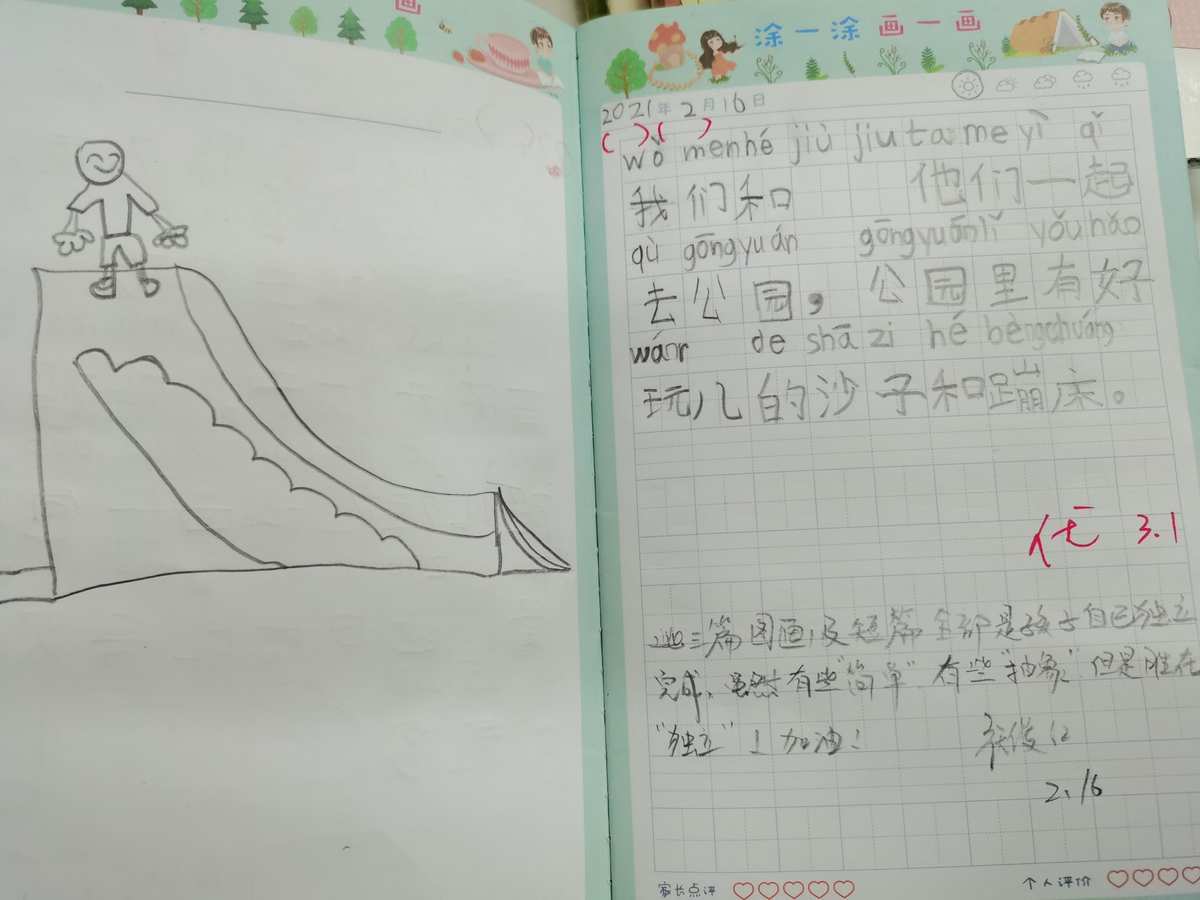 画
涂一涂画一画
2021年2月16日
( )( )
wǒ menhé jiù jiu ta me yì qǐ
我们和 他们一起
qù gōngyuán gōngyuánlǐ yǒuhǎo
去公园，公园里有好
wánr de shā zi hé bèngchuáng
玩儿的沙子和蹦床。
优 3.1
这三篇图画及短篇全部是孩子自己独立
完成，虽然有些"简单"有些"抽象"但是胜在
"独立"！加油！
2.16
家长点评
个人评价